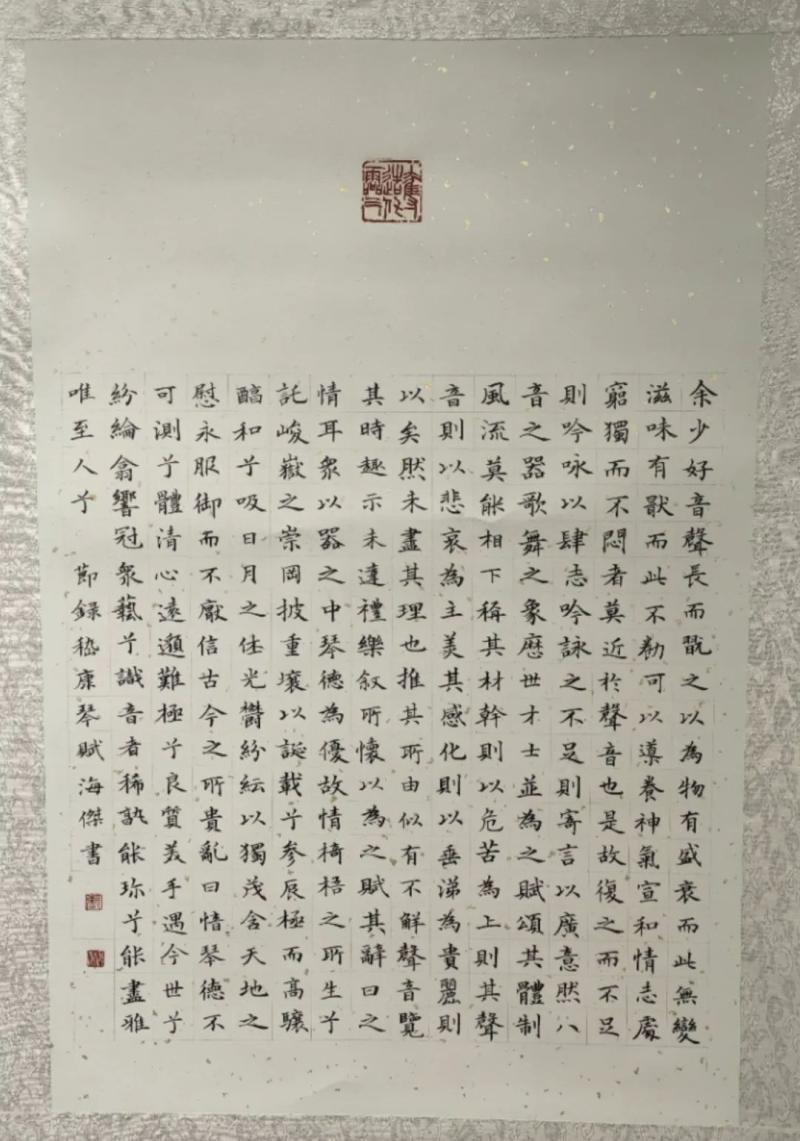 余少好音聲長而翫之以為物有盛衰而此無變
滋味有猒而此不勌可以導養神氣宣和情志處
窮獨而不悶者莫近於聲音也是故復之而不足
則吟咏以肆志吟詠之不足則寄言以廣意然八
音之器歌舞之象歷世才士並為之賦頌其體制
風流莫能相下稱其材幹則以危苦為上則其聲
音則以悲哀為主美其感化則以垂涕為貴麗則
以矣然未盡其理也推其所由似有不解聲音覽
其時趣示未達禮樂叙所懷以為之賦其辭曰之
情耳眾以器之中琴德為優故情椅梧之所生兮
託峻嶽之崇岡披重壤以誕載兮參辰極而高驤
醕和兮吸日月之休光鬱紛紜以獨茂含天地之
慰永服御而不厭信古今之所貴亂曰愔琴德不
可測兮體清心遠邈難極兮良質美手遇今世兮
紛綸翕響冠眾藝兮識音者稀孰能珍兮能盡雅
唯至人兮 節錄嵇康琴賦海傑書